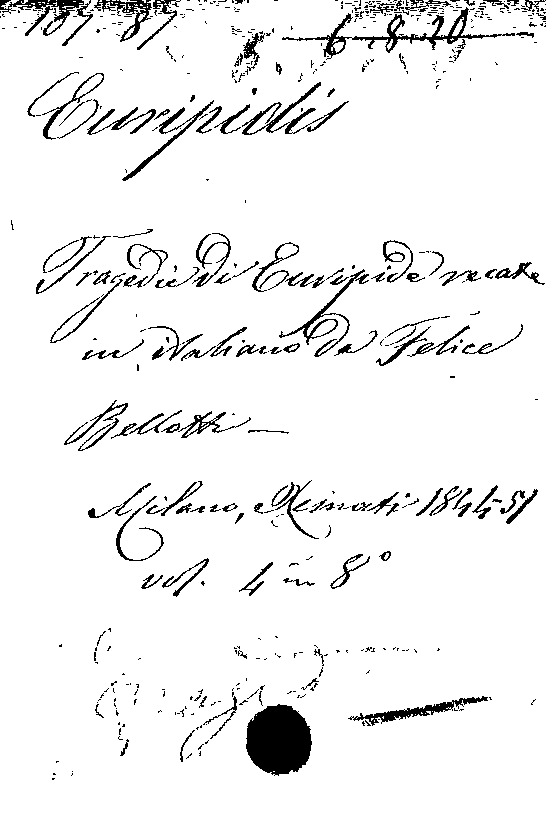 107. 87
6.8.20
Euripidis
Tragedie di Euripide recate
in italiano da Felice
Bellotti —
Milano, Resnati 1844-51
vol. 4 in 8°